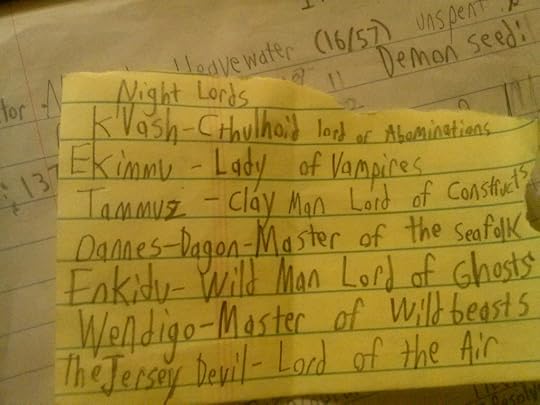 unspent
Heavewater (16/57)
Demon seed:
Night Lords
K'Vash-Cthulhoid lord of Abominations
Ekimmu - Lady of Vampires
Tammuz - Clay Man Lord of Constructs
Oannes-Dagon-Master of the seafolk
Enkidu- Wild Man Lord of Ghosts
Wendigo-Master of Wildbeasts
The Jersey Devil- Lord of the Air